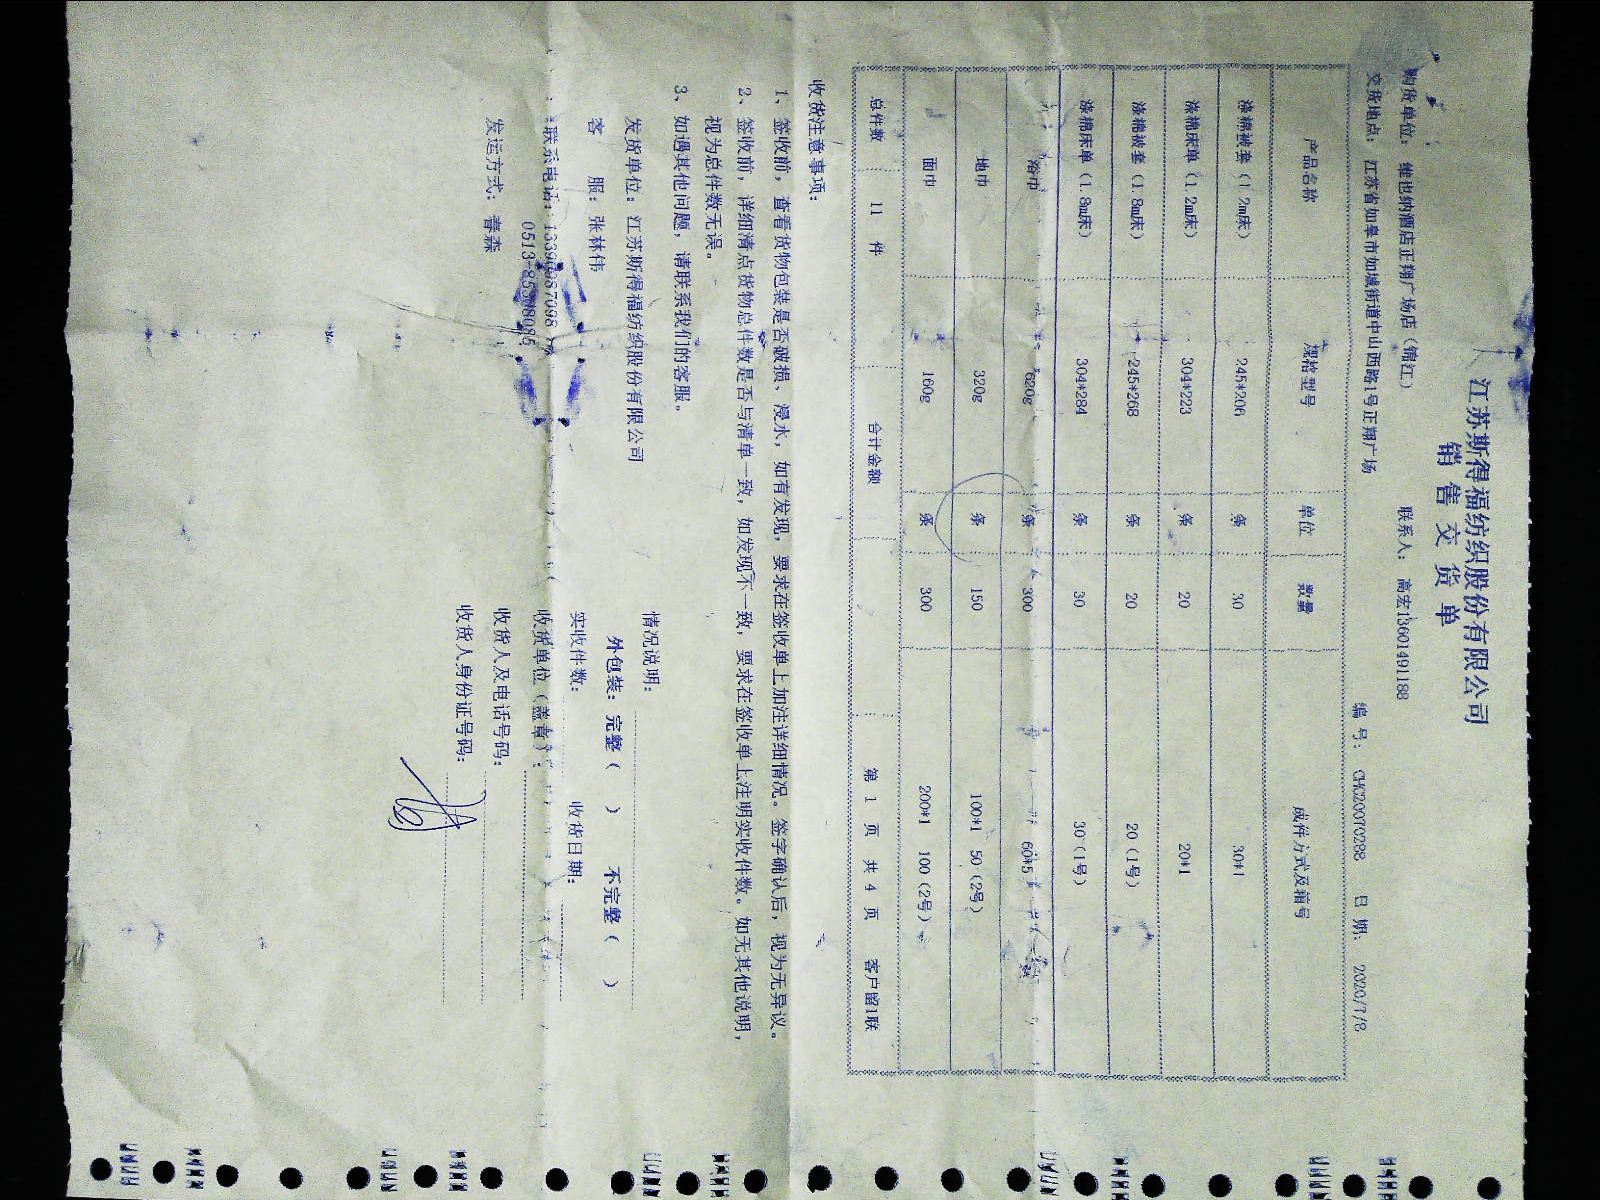 江苏斯得福纺织股份有限公司
销售交货单
编号： CHC20070288 日期： 2020/7/8
购货单位： 维也纳酒店正翔广场店（锦江） 联系人： 高宏13601491188
交货地点： 江苏省如皋市如城街道中山西路1号正翔广场
产品名称 规格型号 单位 数量 成件方式及箱号
涤棉被套（1.2m床） 245*206 条 30 30*1
涤棉床单（1.2m床） 304*223 条 20 20*1
涤棉被套（1.8m床） 245*268 条 20 20（1号）
涤棉床单（1.8m床） 304*284 条 30 30（1号）
浴巾 620g 条 300 60*5
地巾 320g 条 150 100*1 50（2号）
面巾 160g 条 300 200*1 100（2号）
总件数 11 件 合计金额 第 1 页 共 4 页 客户留1联
收货注意事项：
1、签收前，查看货物包装是否破损、浸水，如有发现，要求在签收单上加注详细情况。签字确认后，视为无异议。
2、签收前，详细清点货物总件数是否与清单一致，如发现不一致，要求在签收单上注明实收件数。如无其他说明，
视为总件数无误。
3、如遇其他问题，请联系我们的客服。
发货单位：江苏斯得福纺织股份有限公司
客 服：张林伟
联系电话：
发运方式：春森
情况说明：
外包装：完整（ ） 不完整（ ）
实收件数： 收货日期：
收货单位（盖章）：
收货人及电话号码：
收货人身份证号码：